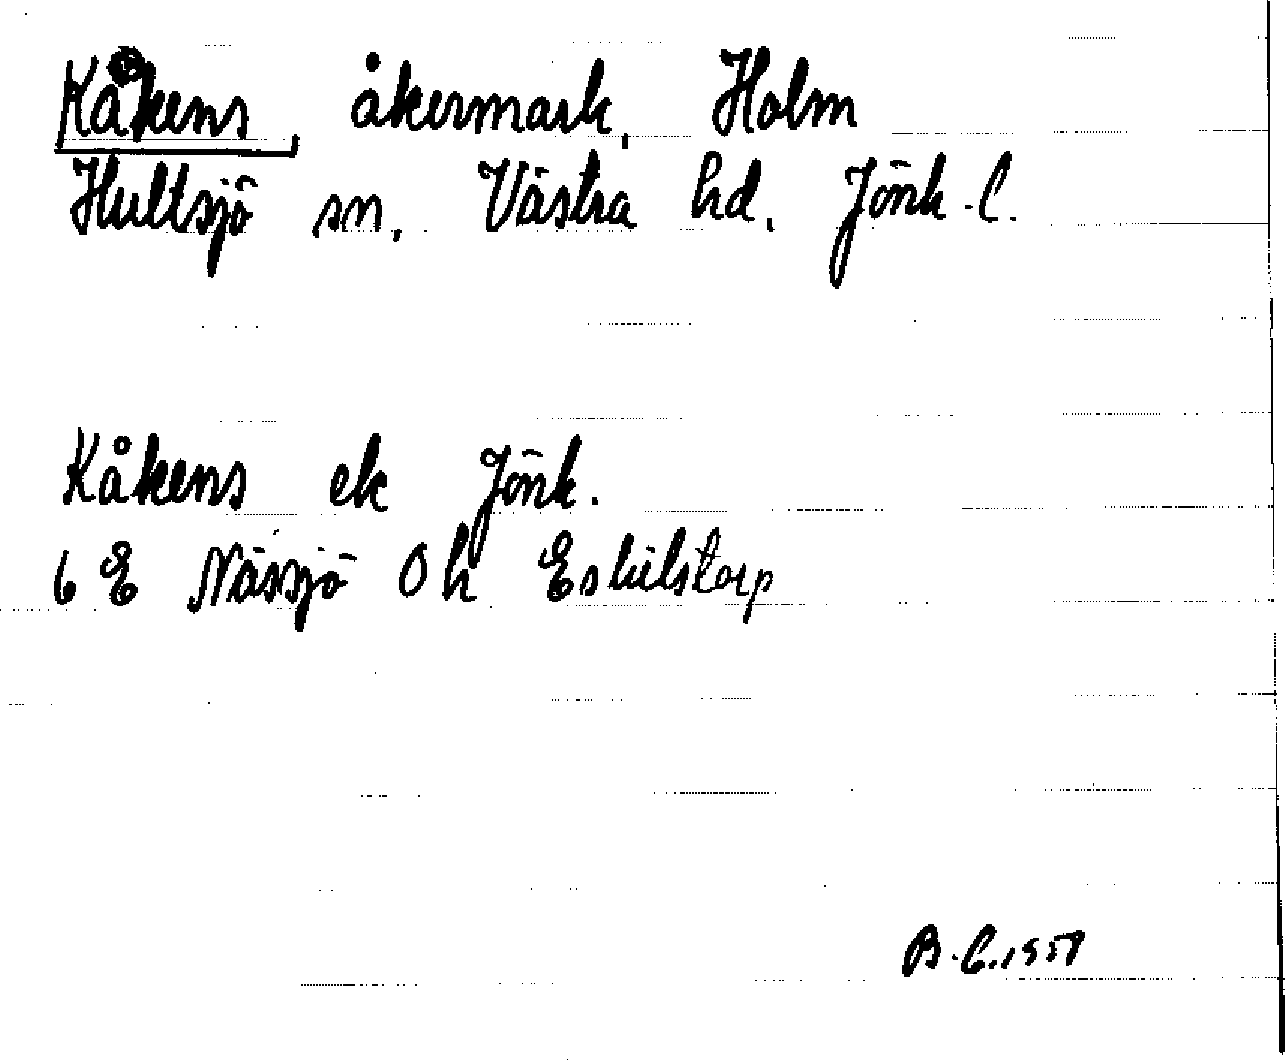 Kåkens, åkermark, Holm
Hultsjö sn, Västra hd, Jönk. l.
Kåkens ek Jönk.
6 E Nässjö 0 h Eskilstorp
B. C. 1951